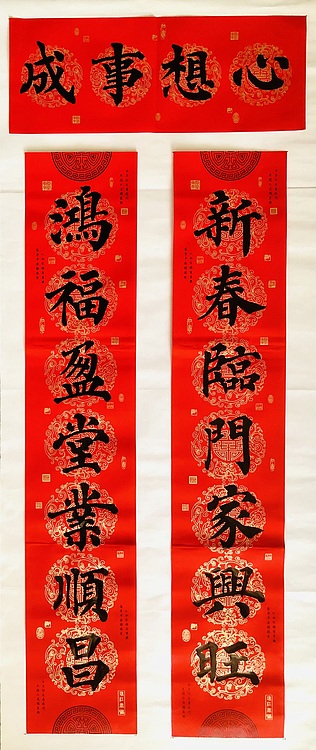 心想事成
新春臨門家興旺
鴻福盈堂業順昌